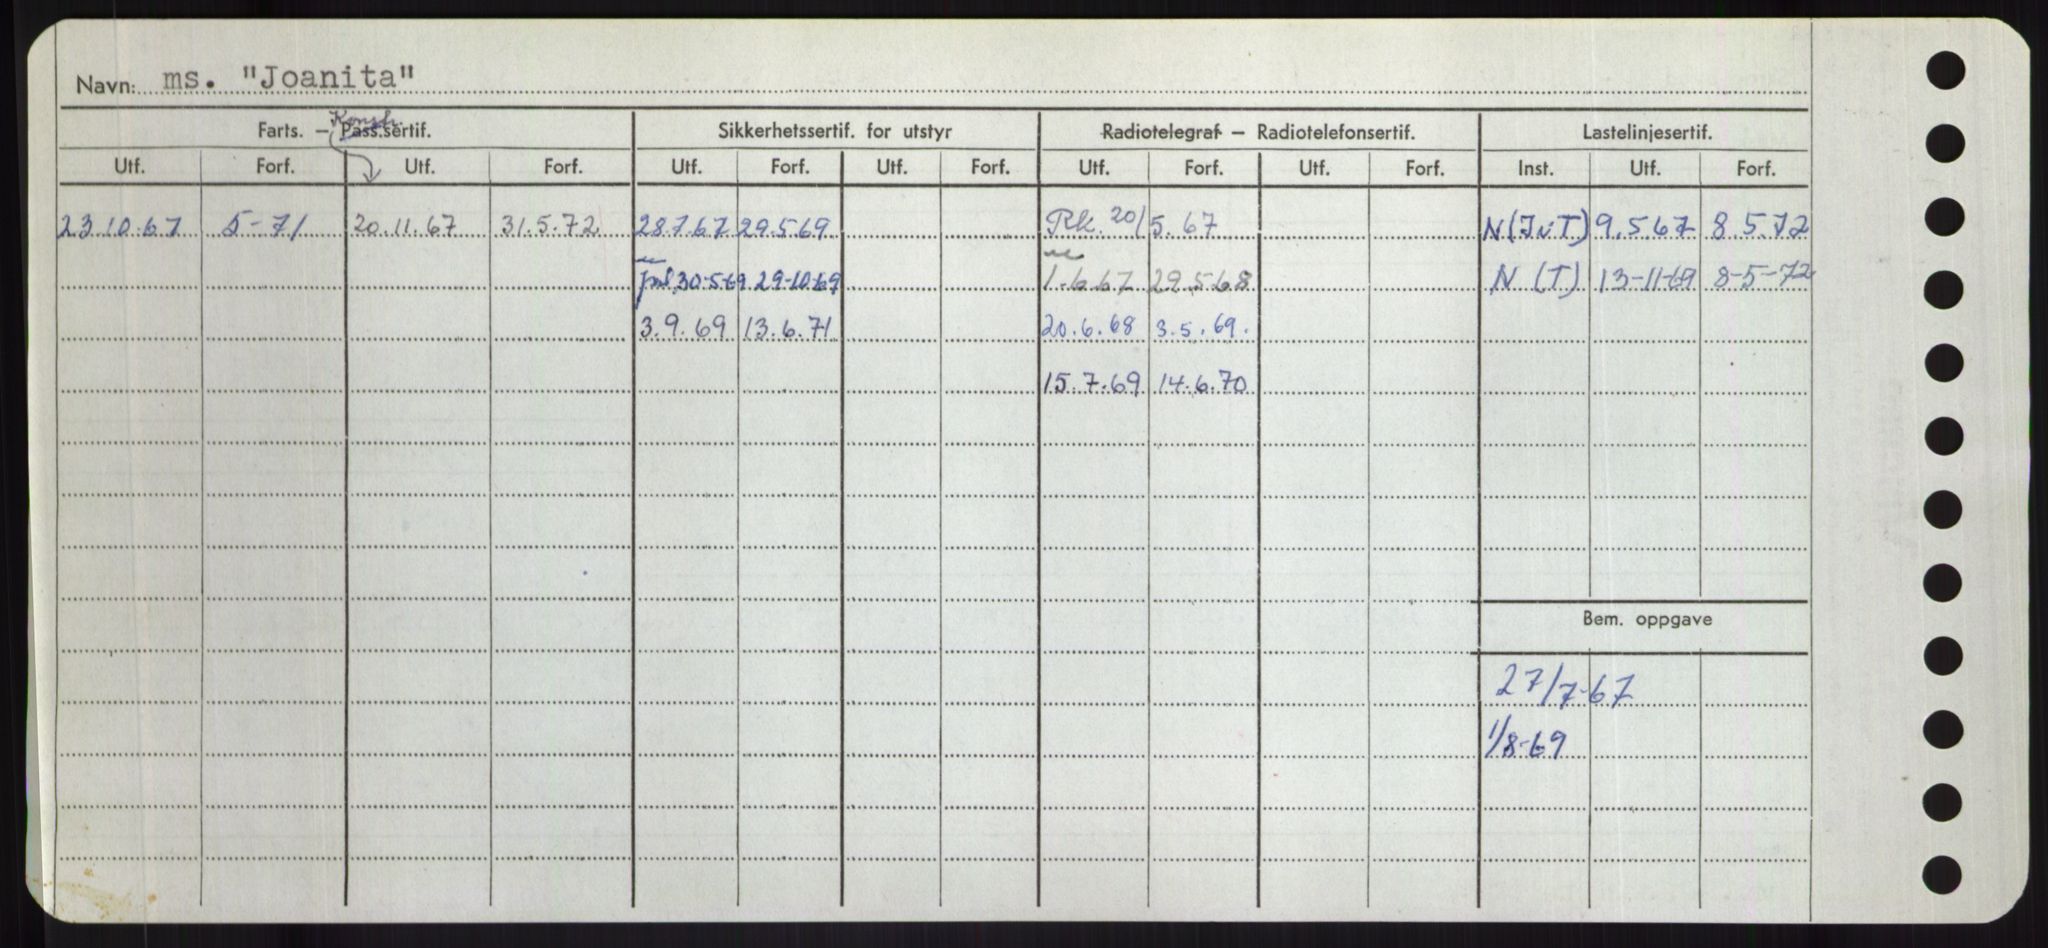 Navn: ms. "Joanita"
Konstr.
Farts. – Pass.sertif. Sikkerhetssertif. for utstyr Radiotelegraf – Radiotelefonsertif. Lastelinjesertif.
Utf. Forf. Utf. Forf. Utf. Forf. Utf. Forf. Utf. Forf. Utf. Forf. Inst. Utf. Forf.
23.10.67 5-71 20.11.67 31.5.72 28.7.67 29.5.69 Rk. 20/5.67 N(IvT) 9.5.67 8.5.72
30-5-69 29-10-69 1.6.67 29.5.68 N (T) 13-11-69 8-5-72
3.9.69 13.6.71 20.6.68 3.5.69.
15.7.69 14.6.70
Bem. oppgave
27/7-67
1/8-69